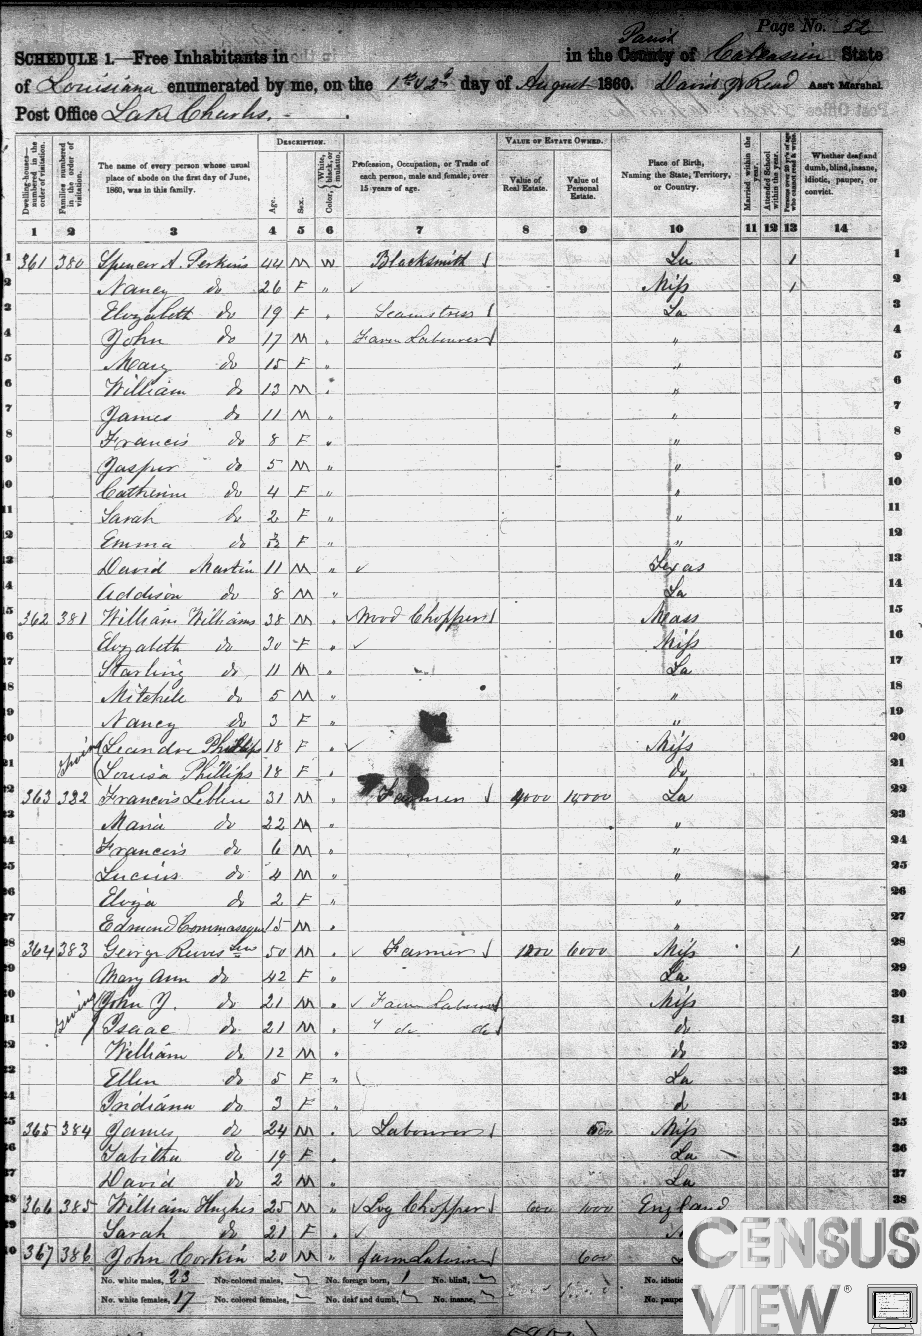 Page No. 52
SCHEDULE 1.—Free Inhabitants in in the County Parish of Calcasieu State
of Louisiana enumerated by me, on the 1st & 2d day of August 1860. David J Read Ass't Marshal
Post Office Lake Charles.
Dwelling-houses—numbered in the order of visitation.
Families numbered in the order of visitation.
The name of every person whose usual place of abode on the first day of June, 1860, was in this family.
DESCRIPTION.
Age.
Sex.
Color, White, black, or mulatto.
Profession, Occupation, or Trade of each person, male and female, over 15 years of age.
VALUE OF ESTATE OWNED.
Value of Real Estate.
Value of Personal Estate.
Place of Birth, Naming the State, Territory, or Country.
Married within the year.
Attended School within the year.
Persons over 20 y'rs of age who cannot read & write.
Whether deaf and dumb, blind, insane, idiotic, pauper, or convict.
1 2 3 4 5 6 7 8 9 10 11 12 13 14
1 361 380 Spencer A. Perkins 44 M W Blacksmith La 1 1
2 Nancy do 26 F " Miss 1 2
3 Elizabeth do 19 F " Seamstress La 3
4 John do 17 M " Farm Labourer " 4
5 Mary do 15 F " " 5
6 William do 13 M " " 6
7 James do 11 M " " 7
8 Francis do 8 F " " 8
9 Jasper do 5 M " " 9
10 Catherine do 4 F " " 10
11 Sarah do 2 F " " 11
12 Emma do F " " 12
13 David Martin 11 M " Texas 13
14 Addison do 8 M " La 14
15 362 381 William Williams 38 M " Wood Chopper Mass 15
16 Elizabeth do 30 F " Miss 16
17 Starling do 11 M " La 17
18 Mitchell do 5 M " " 18
19 Nancy do 3 F " " 19
20 Leandre Phillips 18 F " Miss 20
21 Louisa Phillips 18 F " do 21
22 363 382 Francois Leblue 31 M " Farmer 4000 10000 La 22
23 Maria do 22 M " " 23
24 Francois do 6 M " " 24
25 Lucius do 4 M " " 25
26 Eloiza do 2 F " " 26
27 Edmund 15 M " " 27
28 364 383 George Reeves Sen 50 M " Farmer 1200 6000 Miss 1 28
29 Mary Ann do 42 F " La 29
30 John J. do 21 M " Farm Labourer Miss 30
31 Isaac do 21 M " " do do do 31
32 William do 12 M " do 32
33 Ellen do 5 F " La 33
34 Indiana do 3 F " d 34
35 365 384 James do 24 M " Labourer 500 Miss 35
36 Tabitha do 19 F " La 36
37 David do 2 M " La 37
38 366 385 William Hughes 25 M " Log Chopper 600 1000 England 38
39 Sarah do 21 F "
40 367 386 John Corkin 20 M " farm Laborer 600
No. white males, 23 No. colored males, No. foreign born, 1 No. blind, No. idiotic
No. white females, 17 No. colored females, No. deaf and dumb, No. insane, No. paupe
CENSUS
VIEW®